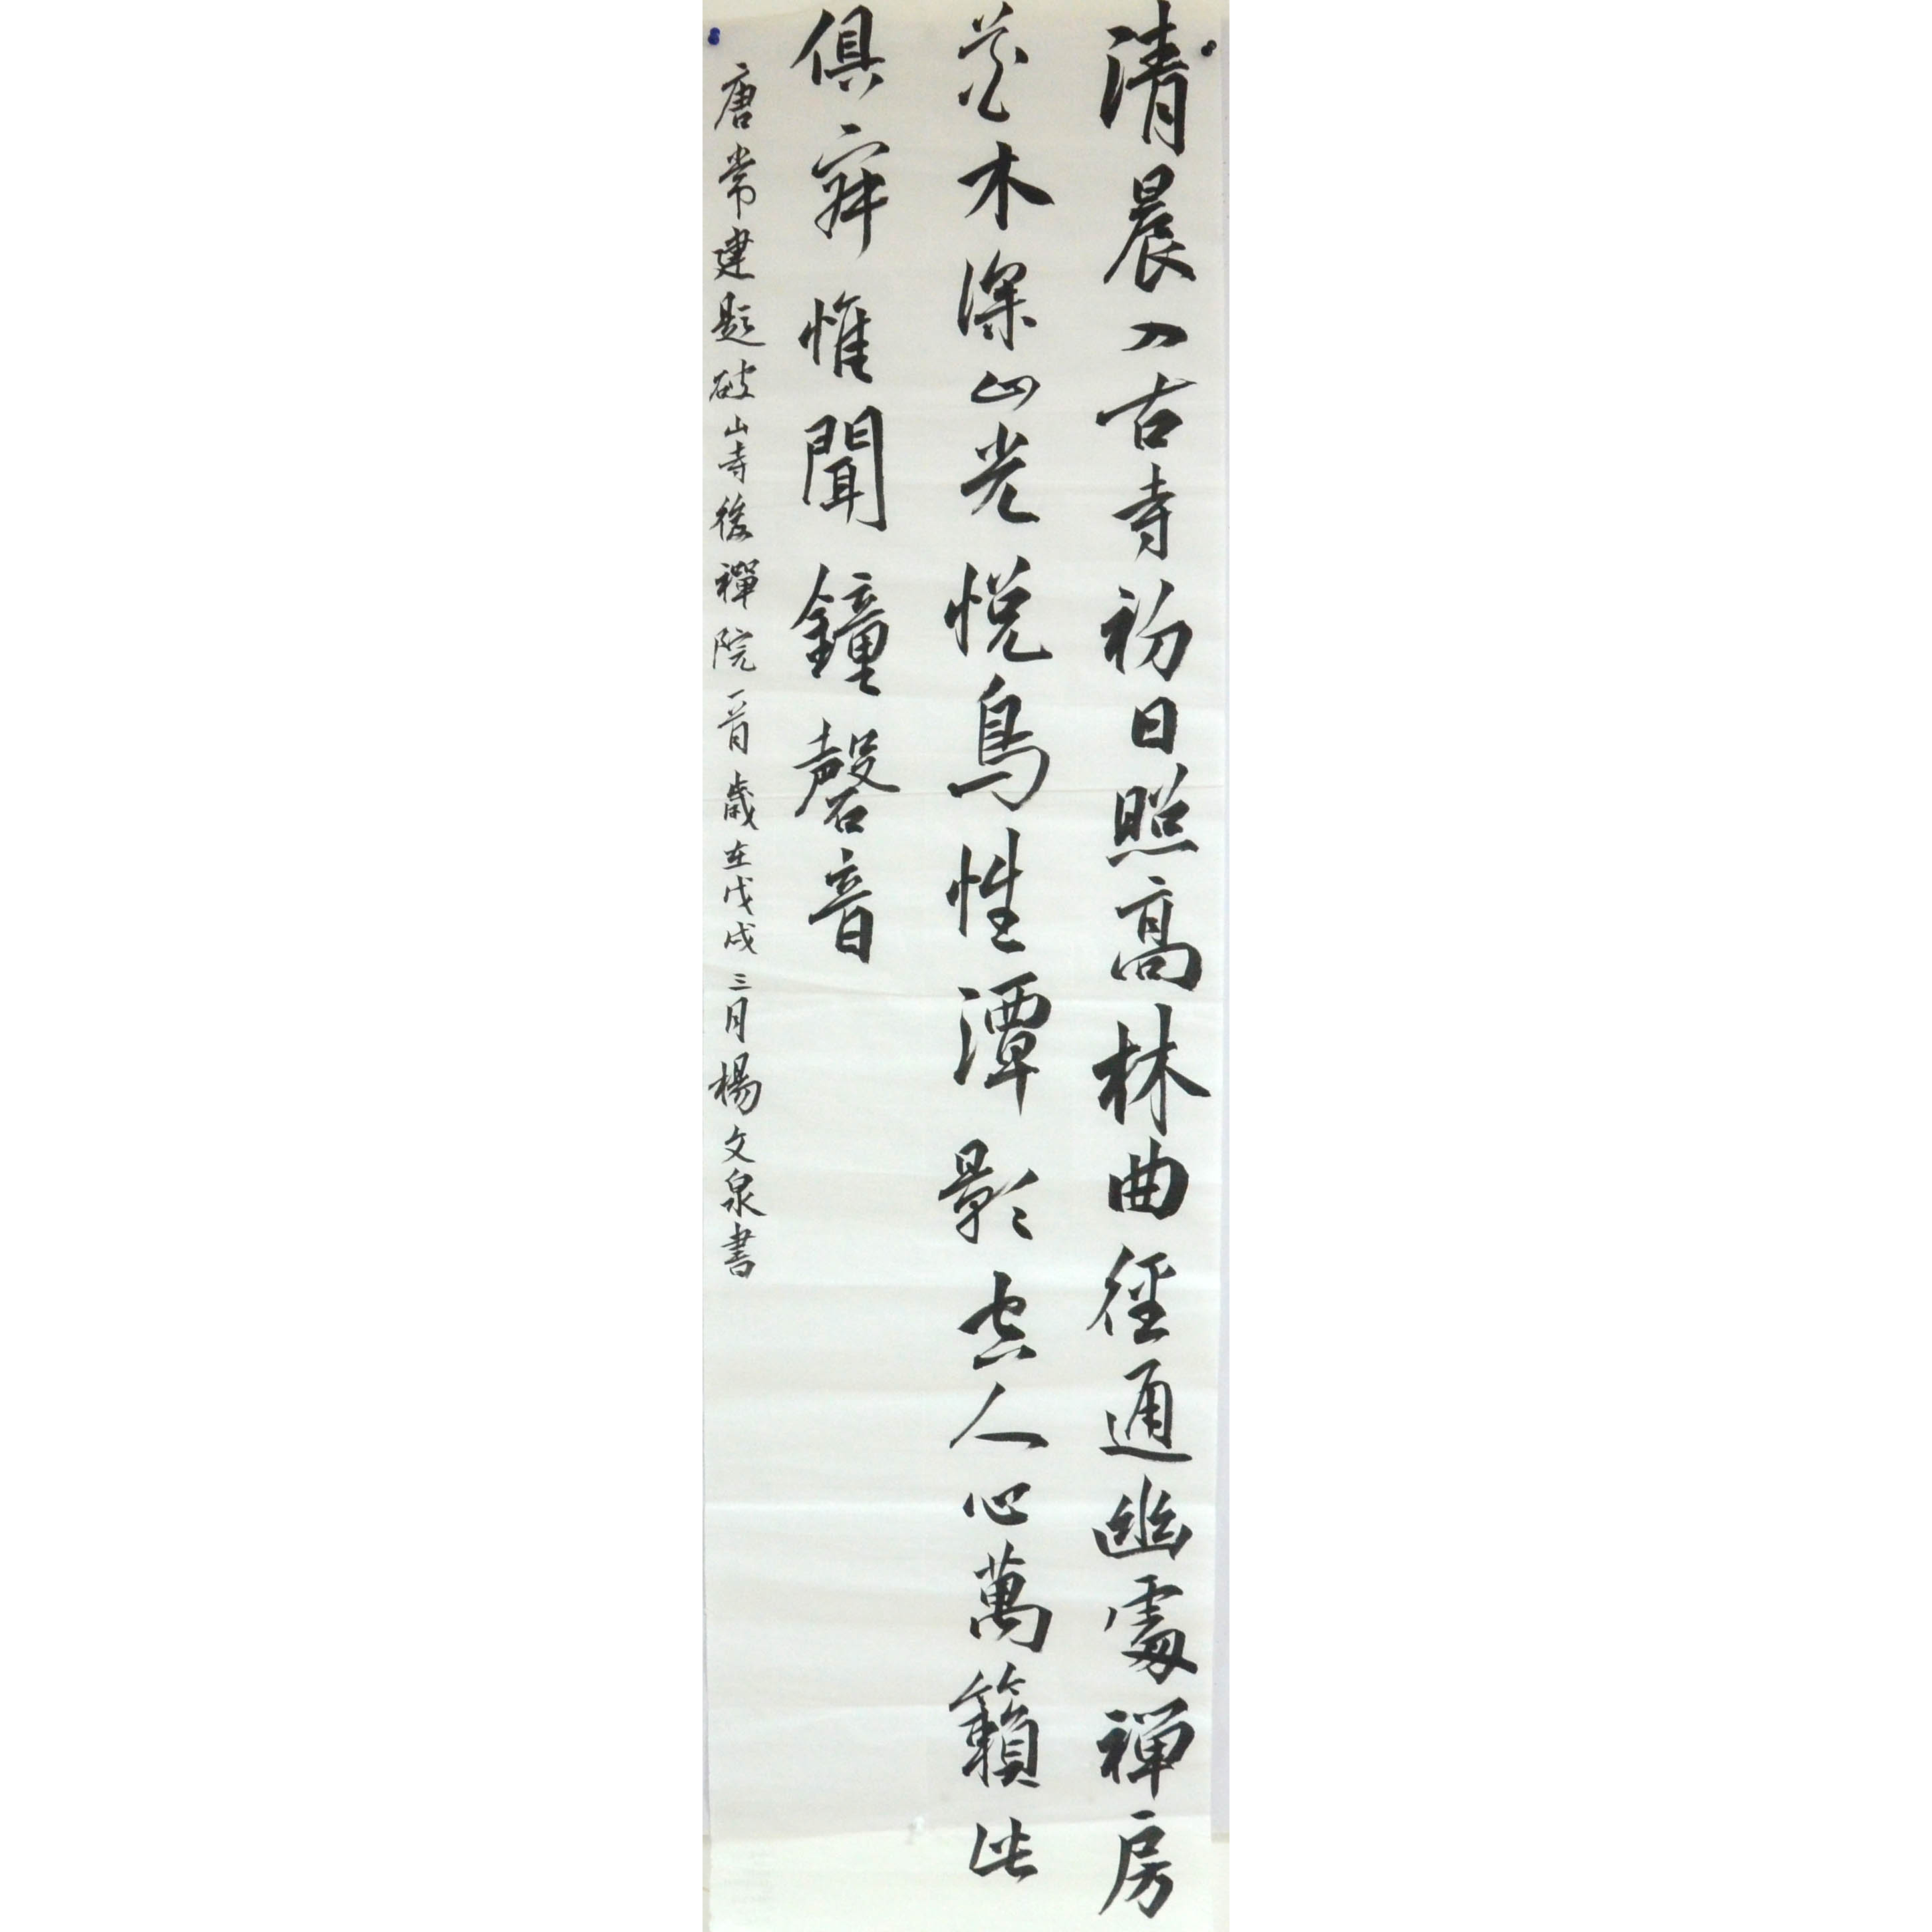 清晨入古寺初日照高林曲徑通幽處禪房
花木深山光悅鳥性潭影空人心萬籟此
俱寂惟聞鐘磬音
唐常建題破山寺後禪院一首歲在戊戌三月楊文泉書